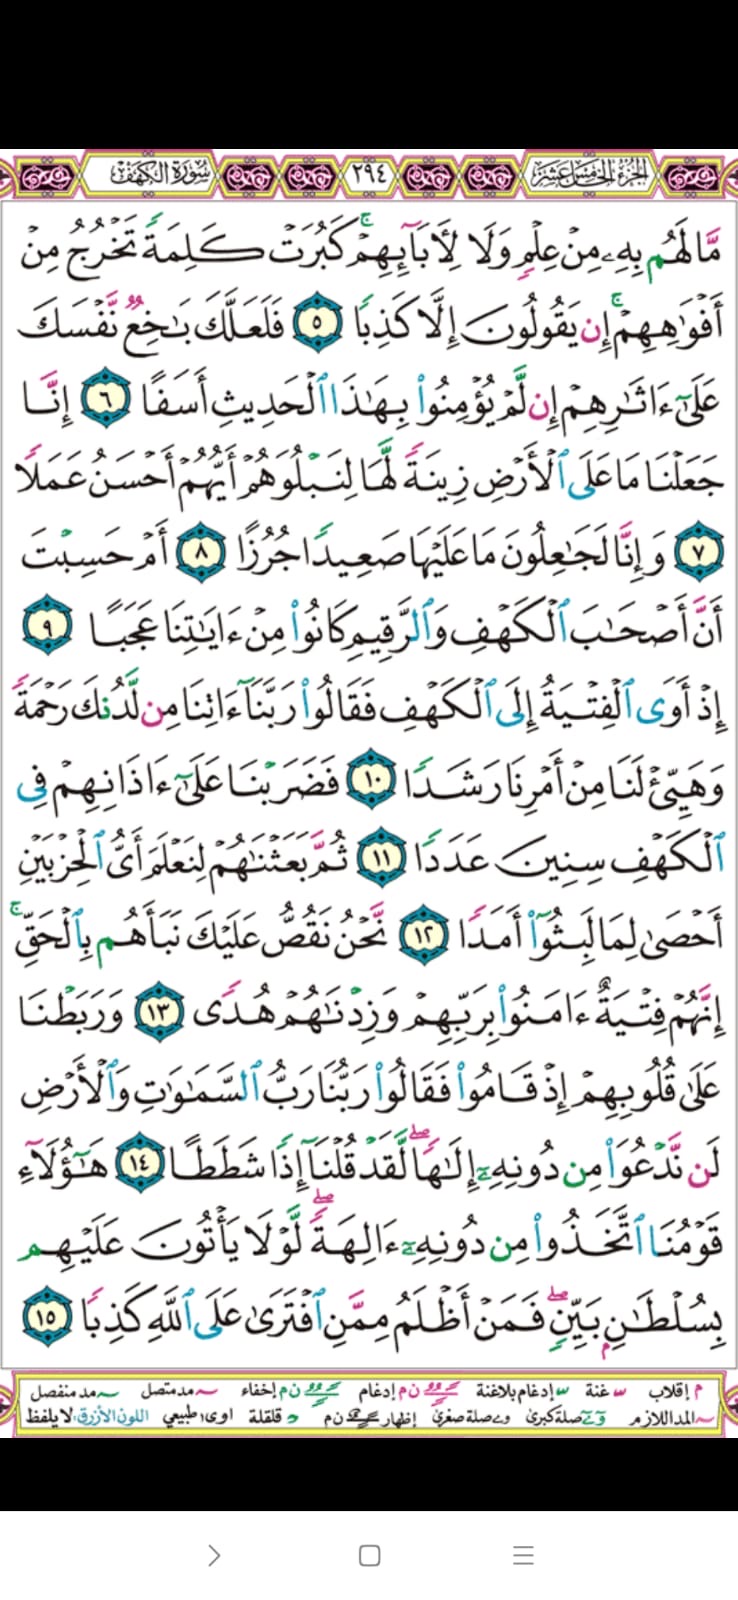 الجزء الخامس عشر ٢٩٤ سورة الكهف
مَّا لَهُم بِهِۦ مِنْ عِلْمٍ وَلَا لِأَبَآئِهِمْ ۚ كَبُرَتْ كَلِمَةً تَخْرُجُ مِنْ
أَفْوَٰهِهِمْ ۚ إِن يَقُولُونَ إِلَّا كَذِبًا ٥ فَلَعَلَّكَ بَٰخِعٌ نَّفْسَكَ
عَلَىٰٓ ءَاثَٰرِهِمْ إِن لَّمْ يُؤْمِنُوا۟ بِهَٰذَا ٱلْحَدِيثِ أَسَفًا ٦ إِنَّا
جَعَلْنَا مَا عَلَى ٱلْأَرْضِ زِينَةً لَّهَا لِنَبْلُوَهُمْ أَيُّهُمْ أَحْسَنُ عَمَلًا
٧ وَإِنَّا لَجَٰعِلُونَ مَا عَلَيْهَا صَعِيدًا جُرُزًا ٨ أَمْ حَسِبْتَ
أَنَّ أَصْحَٰبَ ٱلْكَهْفِ وَٱلرَّقِيمِ كَانُوا۟ مِنْ ءَايَٰتِنَا عَجَبًا ٩
إِذْ أَوَى ٱلْفِتْيَةُ إِلَى ٱلْكَهْفِ فَقَالُوا۟ رَبَّنَآ ءَاتِنَا مِن لَّدُنكَ رَحْمَةً
وَهَيِّئْ لَنَا مِنْ أَمْرِنَا رَشَدًا ١٠ فَضَرَبْنَا عَلَىٰٓ ءَاذَانِهِمْ فِى
ٱلْكَهْفِ سِنِينَ عَدَدًا ١١ ثُمَّ بَعَثْنَٰهُمْ لِنَعْلَمَ أَىُّ ٱلْحِزْبَيْنِ
أَحْصَىٰ لِمَا لَبِثُوٓا۟ أَمَدًا ١٢ نَّحْنُ نَقُصُّ عَلَيْكَ نَبَأَهُم بِٱلْحَقِّ ۚ
إِنَّهُمْ فِتْيَةٌ ءَامَنُوا۟ بِرَبِّهِمْ وَزِدْنَٰهُمْ هُدًى ١٣ وَرَبَطْنَا
عَلَىٰ قُلُوبِهِمْ إِذْ قَامُوا۟ فَقَالُوا۟ رَبُّنَا رَبُّ ٱلسَّمَٰوَٰتِ وَٱلْأَرْضِ
لَن نَّدْعُوَا۟ مِن دُونِهِۦٓ إِلَٰهًا ۖ لَّقَدْ قُلْنَآ إِذًا شَطَطًا ١٤ هَٰٓؤُلَآءِ
قَوْمُنَا ٱتَّخَذُوا۟ مِن دُونِهِۦٓ ءَالِهَةً ۖ لَّوْلَا يَأْتُونَ عَلَيْهِم
بِسُلْطَٰنٍۭ بَيِّنٍ ۖ فَمَنْ أَظْلَمُ مِمَّنِ ٱفْتَرَىٰ عَلَى ٱللَّهِ كَذِبًا ١٥
م إقلاب غنة إدغام بلاغنة ن م إدغام ن م إخفاء مد متصل مد منفصل
المد اللازم صلة كبرى صلة صغرى إظهار ن م قلقلة اوى طبيعي اللون الأزرق: لا يلفظ